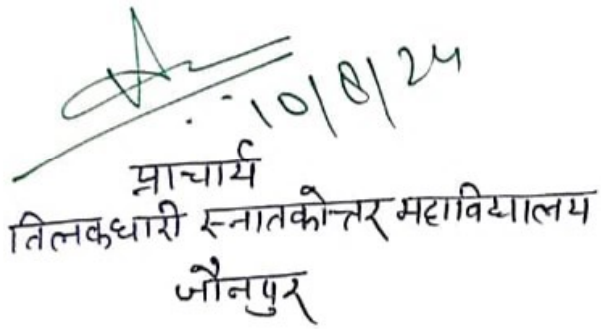 10/8/24
प्राचार्य
तिलकधारी स्नातकोत्तर महाविद्यालय
जौनपुर